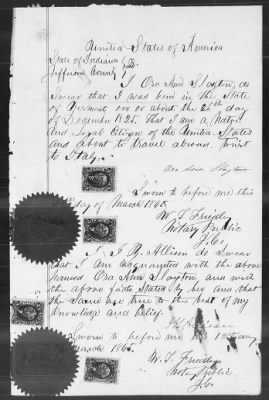 United States of America
State of Indiana } SS
Jefferson County }
I Ora Ann Slayton, do
Swear that I was born in the State
of Vermont on or about the 25th day
of December 1825. That I am a Native
and Legal Citizen of the United States
and about to travel abroad, visit
to Italy.
Ora Ann Slayton
Sworn to before me this
day of March 1865.
W. T. Friedley
Notary Public
J. Co.
I, J. Y. Allison do Swear
that I am acquainted with the above
named Ora Ann Slayton, and with
the above facts stated by her and that
the Same are true to the best of my
Knowledge and belief.
Sworn to before me day
March 1865.
W. T. Friedley
Notary Public
J. Co.